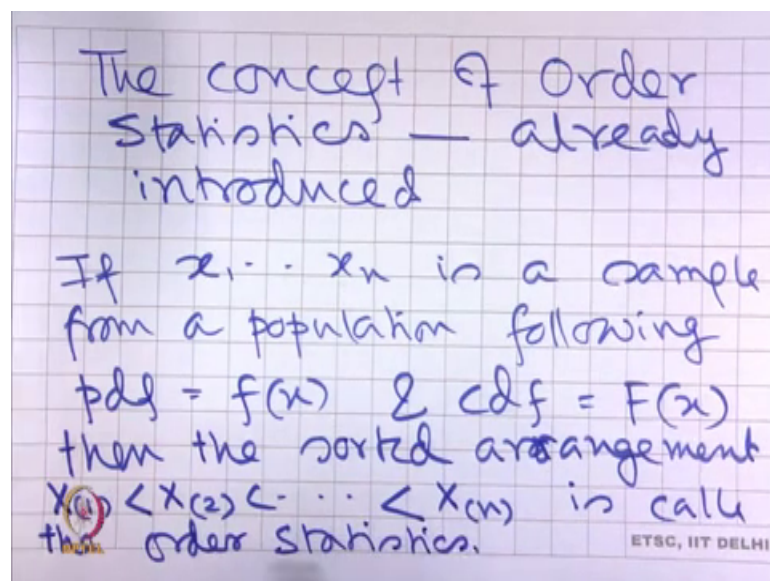 The concept of Order
Statistics — already
introduced
If x₁ .. xₙ is a sample
from a population following
pdf = f(x) & cdf = F(x)
then the sorted arrangement
X(1) < X(2) < ... < X(n) is call
the order statistics.
ETSC, IIT DELHI